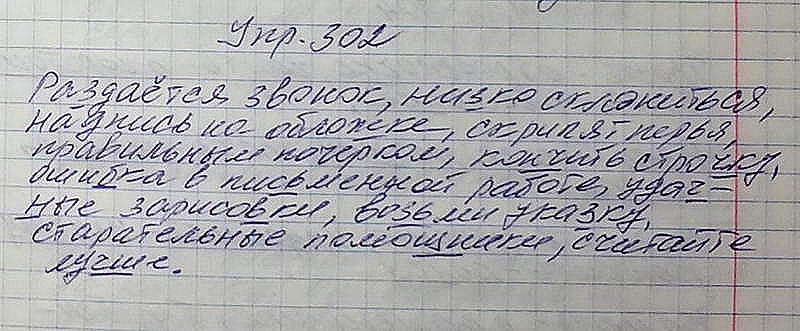 Упр. 302
Раздаётся звонок, низко склониться,
надпись на обложке, скрипят перья,
правильным почерком, кончить строчку,
ошибка в письменной работе, удач-
ные зарисовки, возьми указку,
старательные помощники, считайте
лучше.